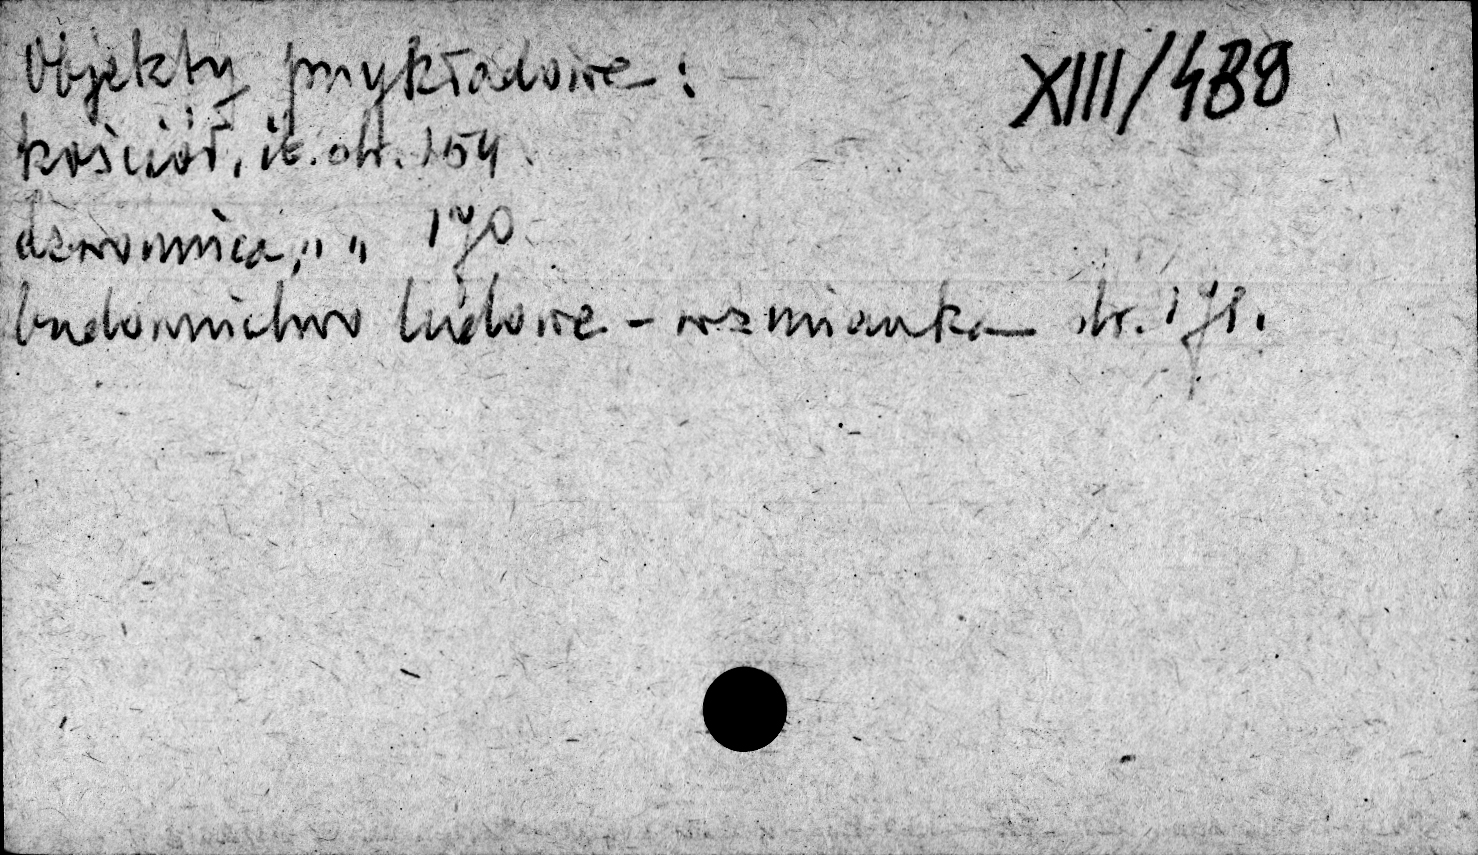 Objekty przykładowe: XIII/488
kościół, il. str. 154
dzwonnica, " " 170
budownictwo ludowe - wzmianka str. 171.